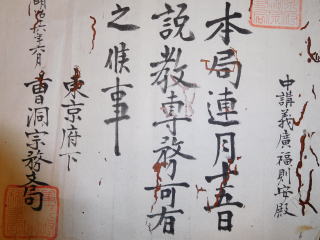 中講義廣福則安殿
本局連月十五日
説教專務可有
之候事
東京府下
曹洞宗務支局
明治六年六月